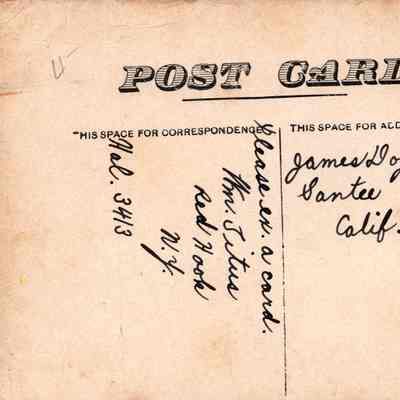 POST CARD
THIS SPACE FOR CORRESPONDENCE
THIS SPACE FOR ADD
Please ex. a card.
Wm. Titus
Red Hook
N.Y.
Hal. 3413
James Do
Santee
Calif.